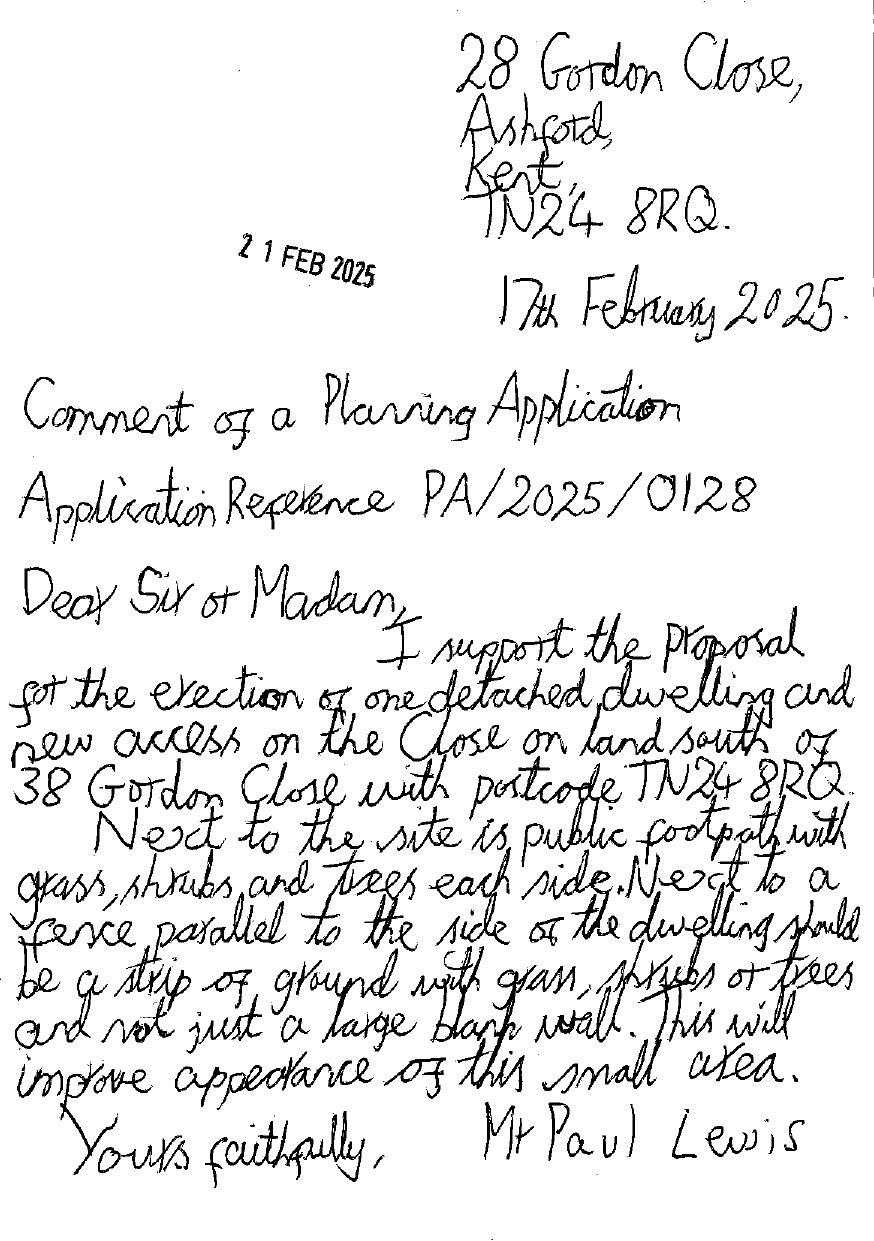 28 Gordon Close,
Ashford,
Kent,
TN24 8RQ.
21 FEB 2025
17th February 2025.
Comment of a Planning Application
Application Reference PA/2025/0128
Dear Sir or Madam,
I support the proposal
for the erection of one detached dwelling and
new access on the Close on land south of
38 Gordon Close with postcode TN24 8RQ.
Next to the site is public footpath with
grass, shrubs and trees each side. Next to a
fence parallel to the side of the dwelling should
be a strip of ground with grass, shrubs or trees
and not just a large blank wall. This will
improve appearance of this small area.
Yours faithfully, Mr Paul Lewis